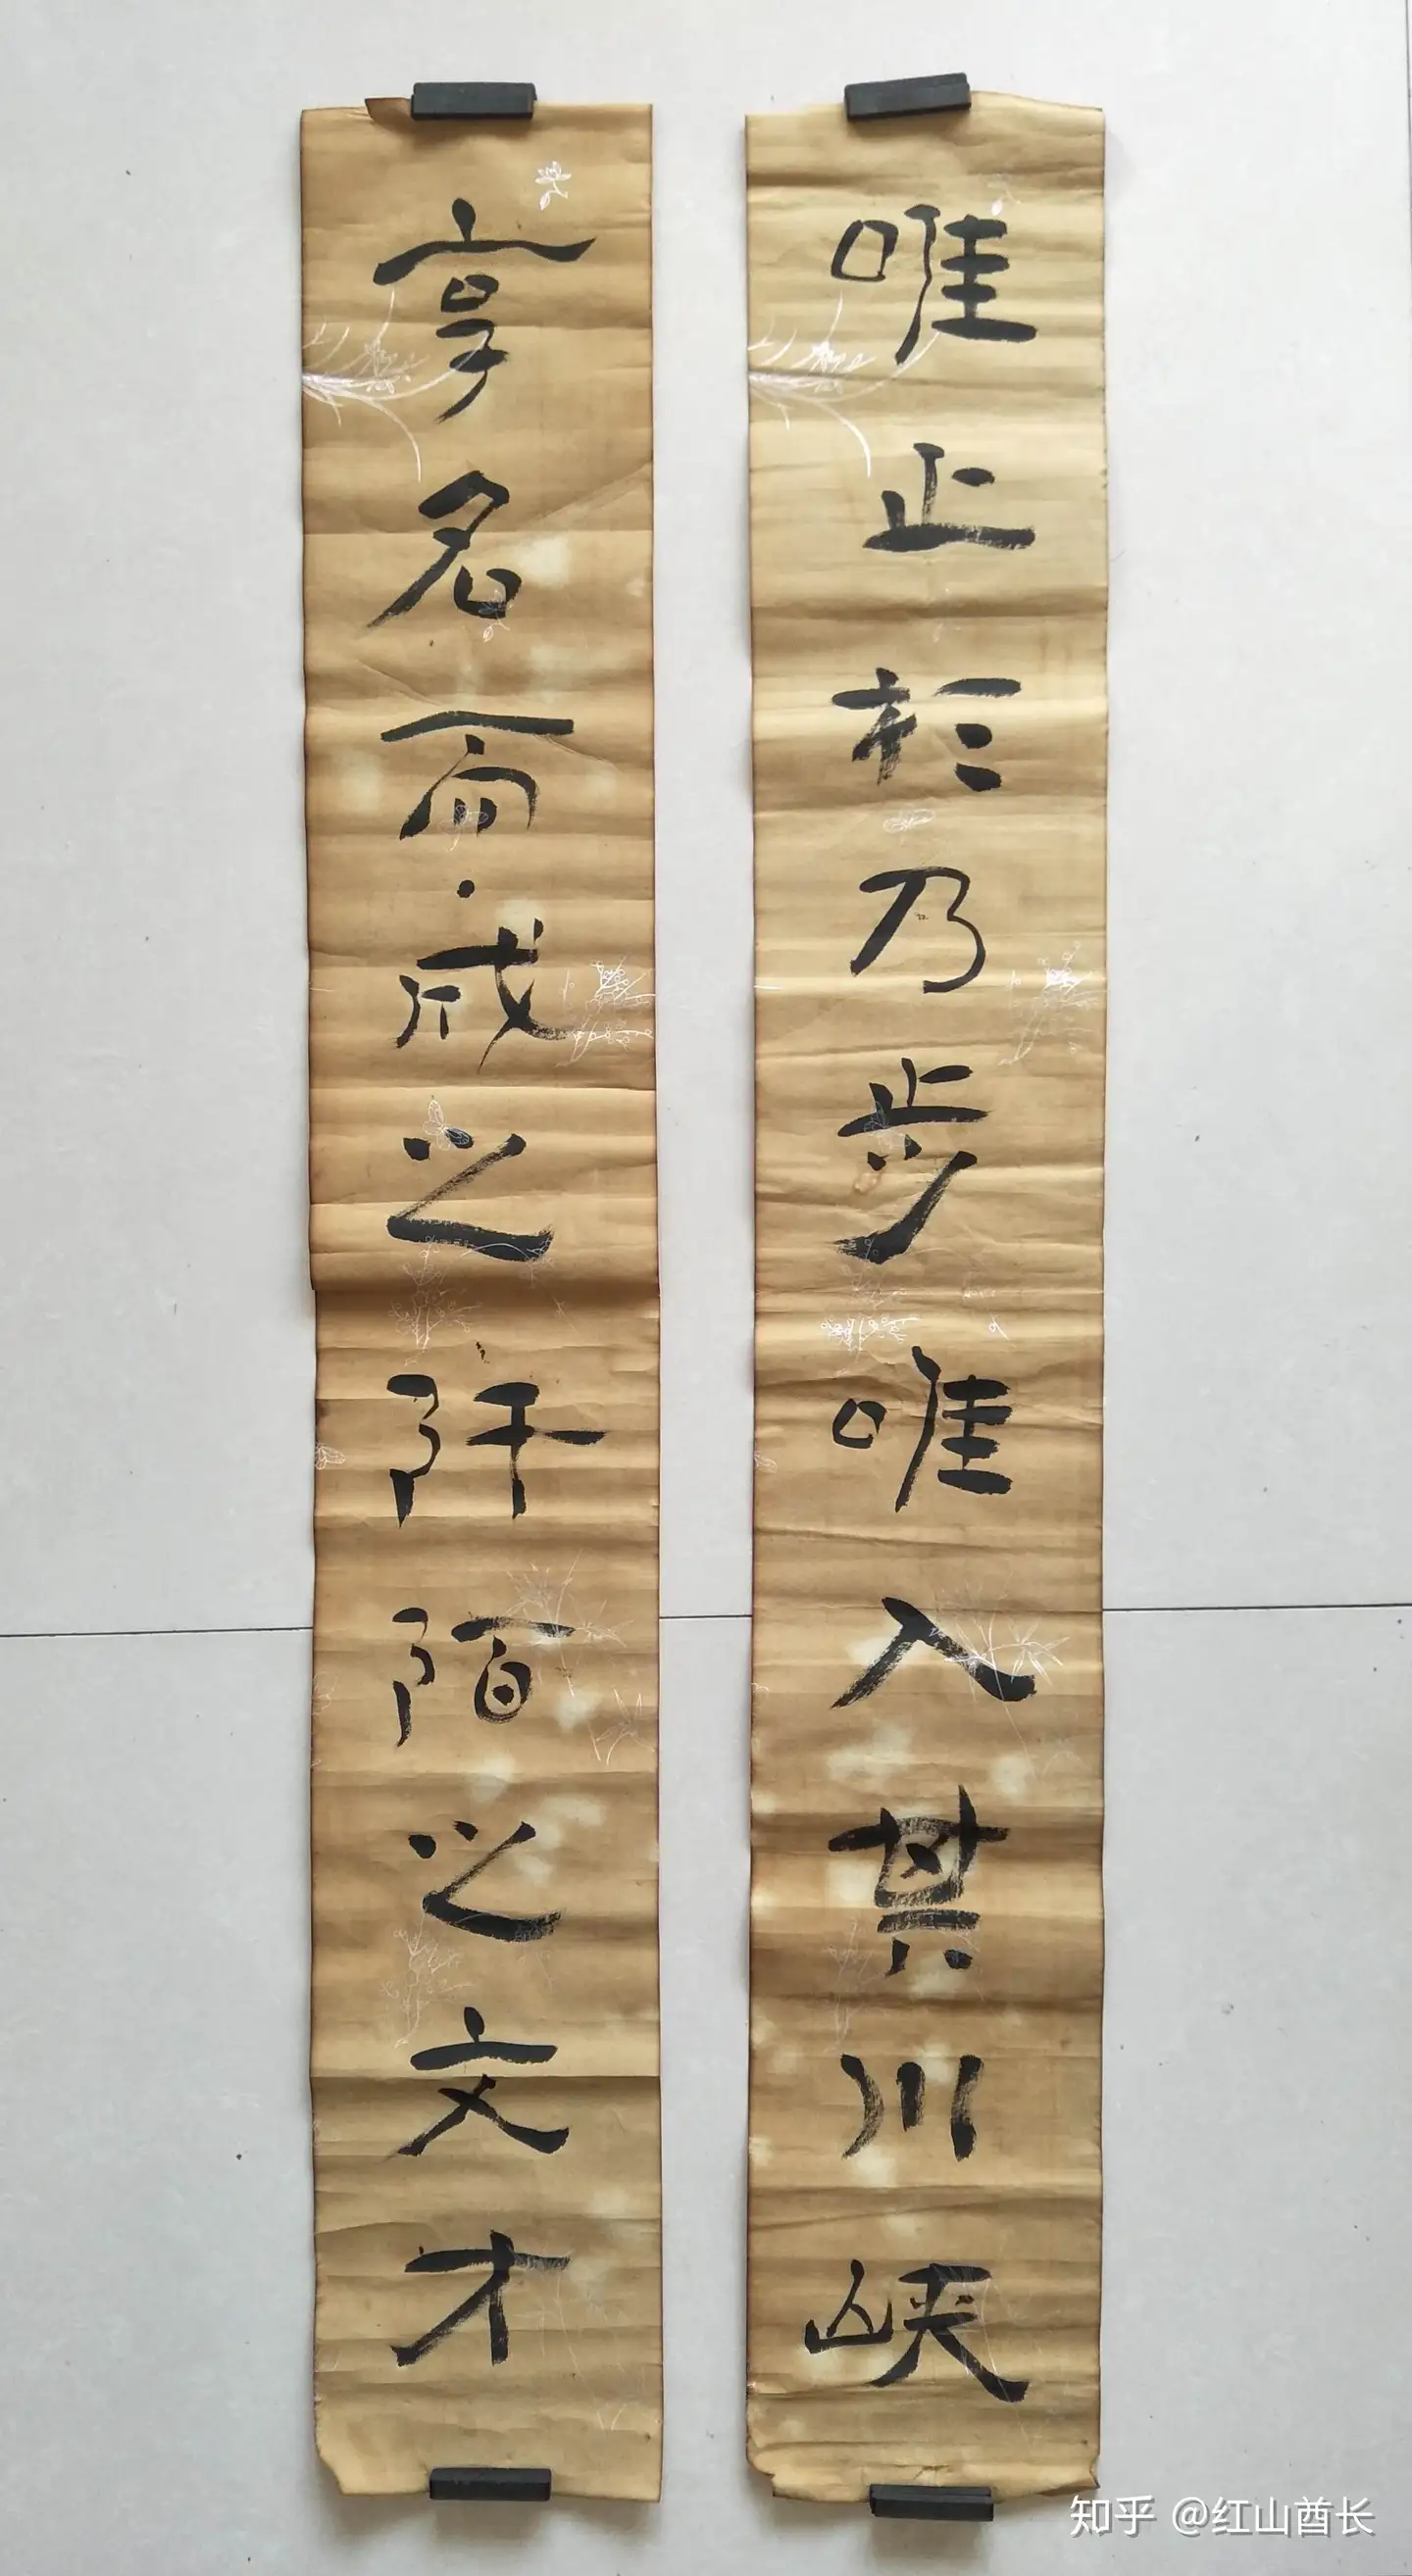 唯止於乃步唯入其川峡
享名而成之阡陌之文才
知乎 @红山酋长